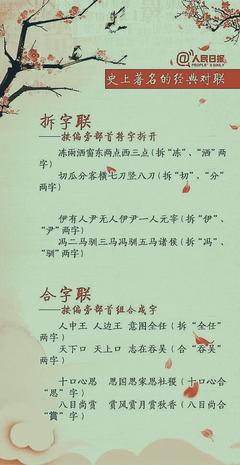 @人民日报
PEOPLE'S DAILY
史上著名的经典对联
拆字联
——按偏旁部首将字拆开
冻雨洒窗东两点西三点(拆“冻”、“洒”两
字)
切瓜分客横七刀竖八刀(拆“切”、“分”
两字)
伊有人尹无人伊尹一人元宰(拆“伊”、
“尹”两字)
冯二马驯三马冯驯五马诸侯(拆“冯”、
“驯”两字)
合字联
——按偏旁部首组合成字
人中王 人边王 意图全任(拆“全任”
两字)
天下口 天上口 志在吞吴(合“吞吴”
两字)
十口心思 思国思家思社稷(十口心合
“思”字)
八目尚赏 赏风赏月赏秋香(八目尚合
“賞”字)